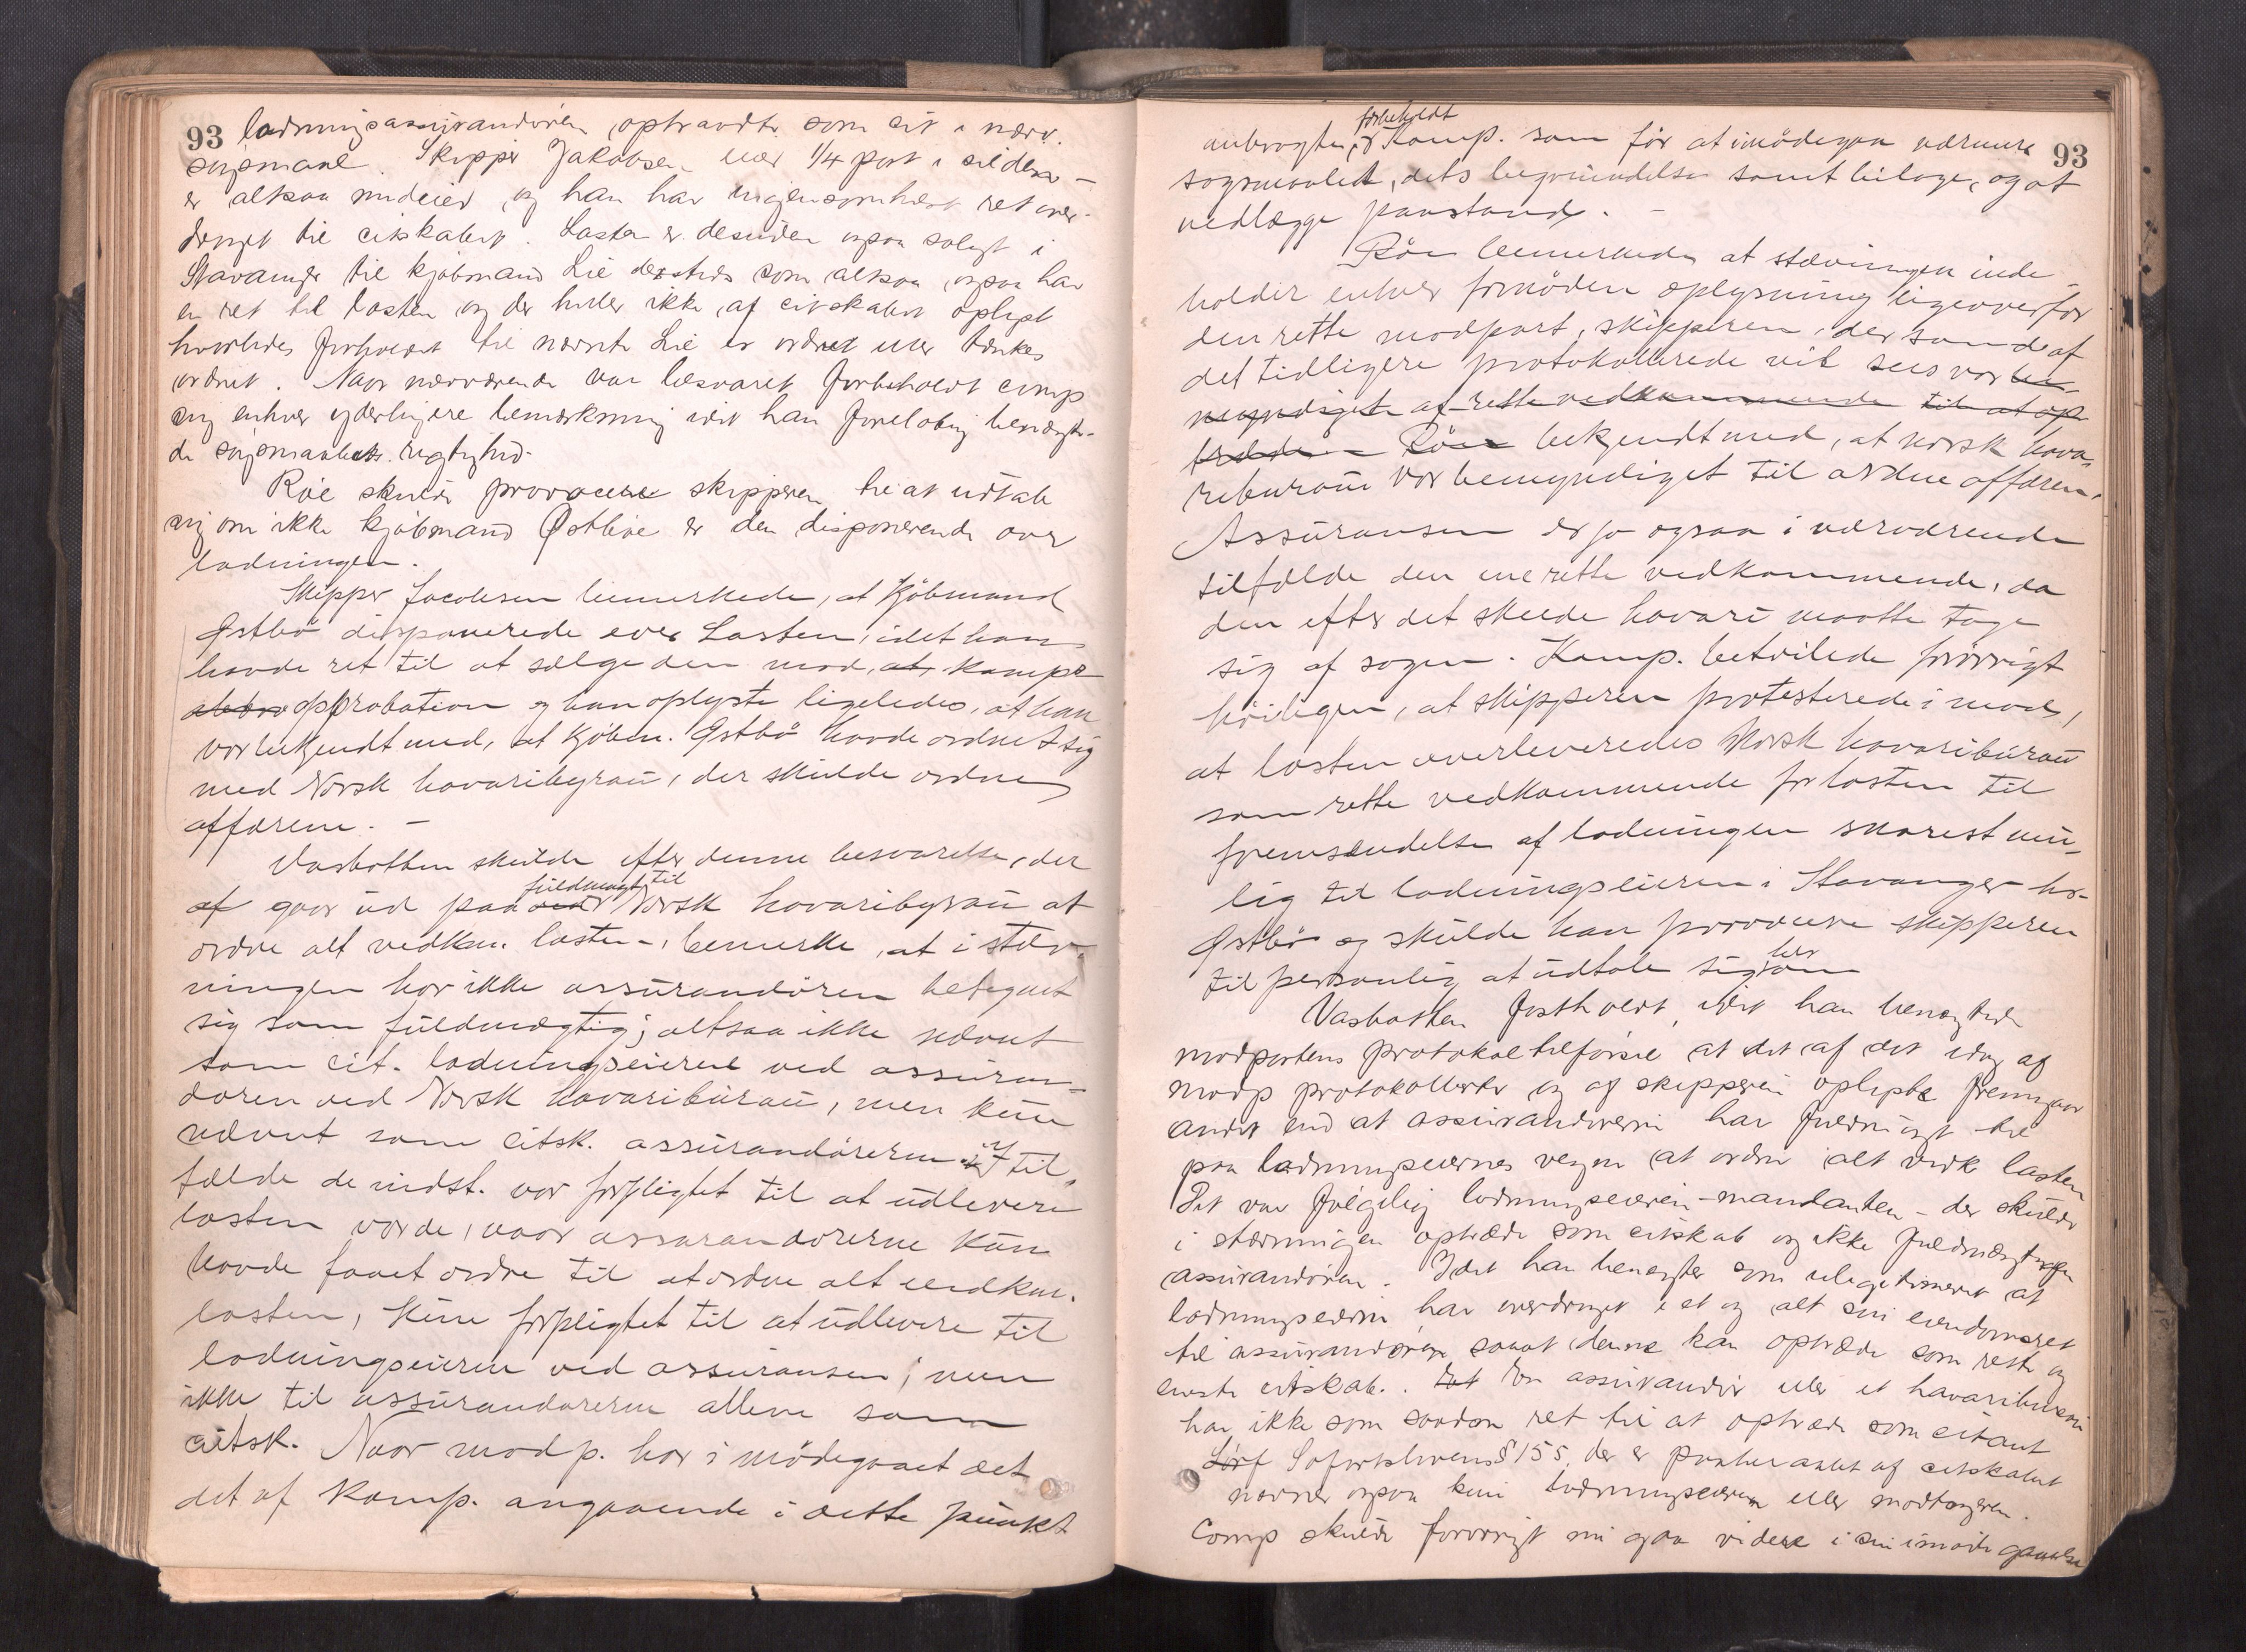 93 ladningsassurandören, optraadte som cit i nærv.
søgsmaal. Skipper Jakobsen eier 1/4 part i silden –
er altsaa medeier, og han har ingensomhelst ret over-
draget til citskabet. Lasten er desuden ogsaa solgt i
Stavanger til kjøbmand Lie dersteds som altsaa ogsaa har
en ret til lasten og der heller ikke af citskabet oplyst
hvorledes forholdet til nævnte Lie er ordnet eller tænkes
ordnet. Naar nærværende var besvaret forbeholdt comp
sig enhver yderligere bemærkning idet han foreløbig benægte-
de søgsmaalets rigtighed.
Röe skulde provocere skipperen til at udtale
sig om ikke kjøbmand Østbøe er den disponerende over
ladningen.
Skipper Jacobsen bemerkede, at Kjöbmand
Østbö disponerede over Lasten, idet han
havde ret til at sælge den mod at komps
approbation og han oplyste ligeledes, at han
var bekjendt med, at Kjöbm. Østbö havde ordnet sig
med Norsk havaribyraü, der skulde ordne
affæren. –
Vasbotten skulde efter denne besvarelse, der
af gaar ud paa fuldmagt til Norsk havaribyraü at
ordne alt vedkm. lasten –, bemerke, at i stæv-
ningen har ikke assürandören betegnet
sig som füldmægtig; altsaa ikke nævnt
som cit. ladningseieren ved assüran-
dören ved Norsk Havaribüraü, men kün
nævnt som citsk. assürandörerne. I til-
fælde de indst. var forpligtet til at üdlevere
lasten vorde, naar assurandörerne kün
havde faaet ordre til at ordne alt vedkm.
lasten, kün forpligtet til at üdlevere til
ladningseieren ved assüransen; men
ikke til assürandörerne allene som
citsk. Naar modp. har imödegaaet det
det af Komp. angaaende i dette pünkt
anbragte, forbeholdt Komp. som för at imödegaa nærværende 93
sögsmaalet, dets begründelse samt bilage, og at
nedlægge paastand. –
Röe bemerkede at stævningen inde-
holder enhver fornöden oplysning ligeoverfor
den rette modpart, skipperen, der som de af
det tidligere protokollerede vil sees var be-
myndiget af rette vedkommende til at op-
træde Röe bekjendt med, at norsk hava-
ribüraü var bemyndiget til at ordne affæren.
Assüransen er jo ogsaa i nærværende
tilfælde den ene rette vedkommende, da
den efter det skeede havari maatte tage
sig af sagen. Komp. betvilede forövrigt
höiligen, at skipperen protesterede imod,
at lasten overleveredes Norsk havaribüraü
som rette vedkommende for lasten til
fremsendelse af ladningen snarest mü-
lig til ladningseieren i Stavanger hr.
Østbö og skülde han provocere skipperen
til personlig at üdtale sig herom
Vasbotten fastholdt, idet han benægtede
modpartens protokoltilförsel at det af det idag af
modp protokollerte og af skipperen oplyste fremgaar
andet end at assurandörerne har fuldmagt til
paa ladningseiernes vegne at ordne alt vedk lasten
Det var følgelig ladningseieren – mandanten – der skulde
i stævningen optræde som citskab og ikke fuldmægtigen
assurandören. Idet han benægter som ulegitimeret at
ladningseieren har overdraget i et og alt sin eiendomsret
til assurandören saaat denne kan optræde som rette og
eneste citskab. Det En assurandör eller et havaribureau
har ikke som saadan ret til at optræde som citant
Søfartslovens § 155, der er paaberaabt af citskabet
nævner ogsaa kun ladningseieren eller modtageren.
Comp skulde forövrigt nu gaa videre i sin imödegaaelse